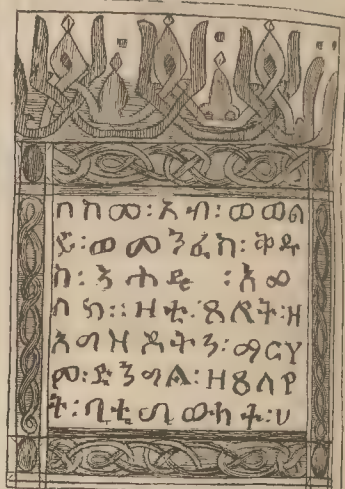 በስመ፡አብ፡ወወል
ድ፡ወመንፈስ፡ቅዱ
ስ፡አሐዱ ፡አም
ላክ፡፡ዛቲ፡ጸሎት፡ዘ
እግዝእትን፡ማርያ
ም፡ድንግል፡ዘጸለየ
ት፡